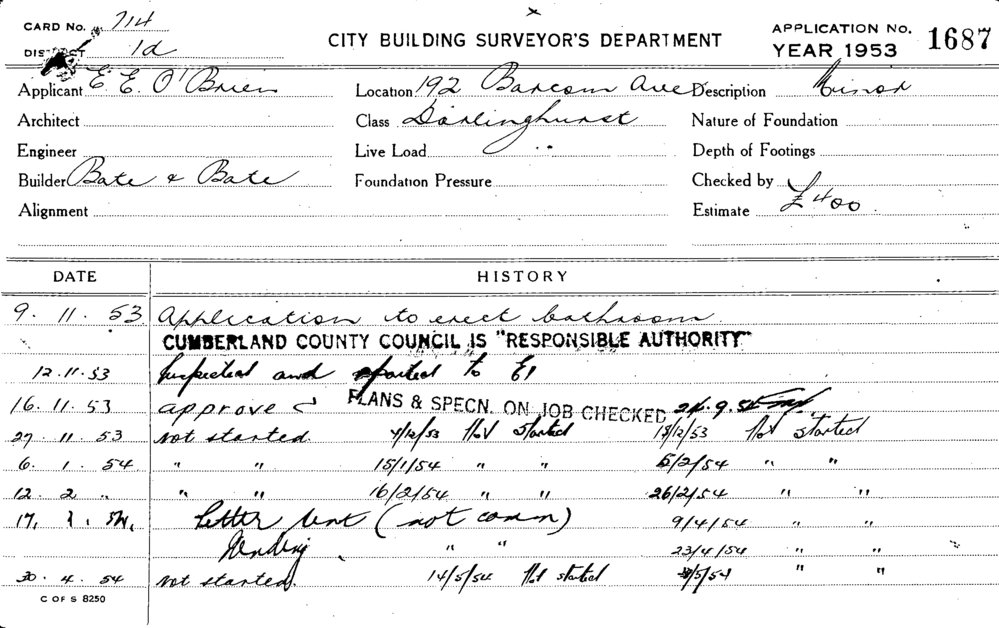 CARD No. 714
DISTRICT 1d
CITY BUILDING SURVEYOR'S DEPARTMENT
APPLICATION No. 1687
YEAR 1953
Applicant E E. O'Brien Location 192 Barcom Ave Description Minor
Architect Class Darlinghurst Nature of Foundation
Engineer Live Load Depth of Footings
Builder Bate & Bate Foundation Pressure Checked by
Alignment Estimate £400
DATE HISTORY
9. 11. 53 Application to erect bathroom
CUMBERLAND COUNTY COUNCIL IS "RESPONSIBLE AUTHORITY"
12.11.53 Inspected and reported to
16. 11. 53 approved PLANS & SPECN. ON JOB CHECKED
27. 11. 53 not started. 4/12/53 Not started 18/12/53 Not started
6. 1. 54 " " 15/1/54 " " 5/2/54 " "
12. 2 " " " 16/2/54 " " 26/2/54 " "
17. 54. Letter sent (not comm) 9/4/54 " "
Pending " " 23/4/54 " "
30. 4. 54 not started. 14/5/54 Not started /5/54 " "
C OF S 8250